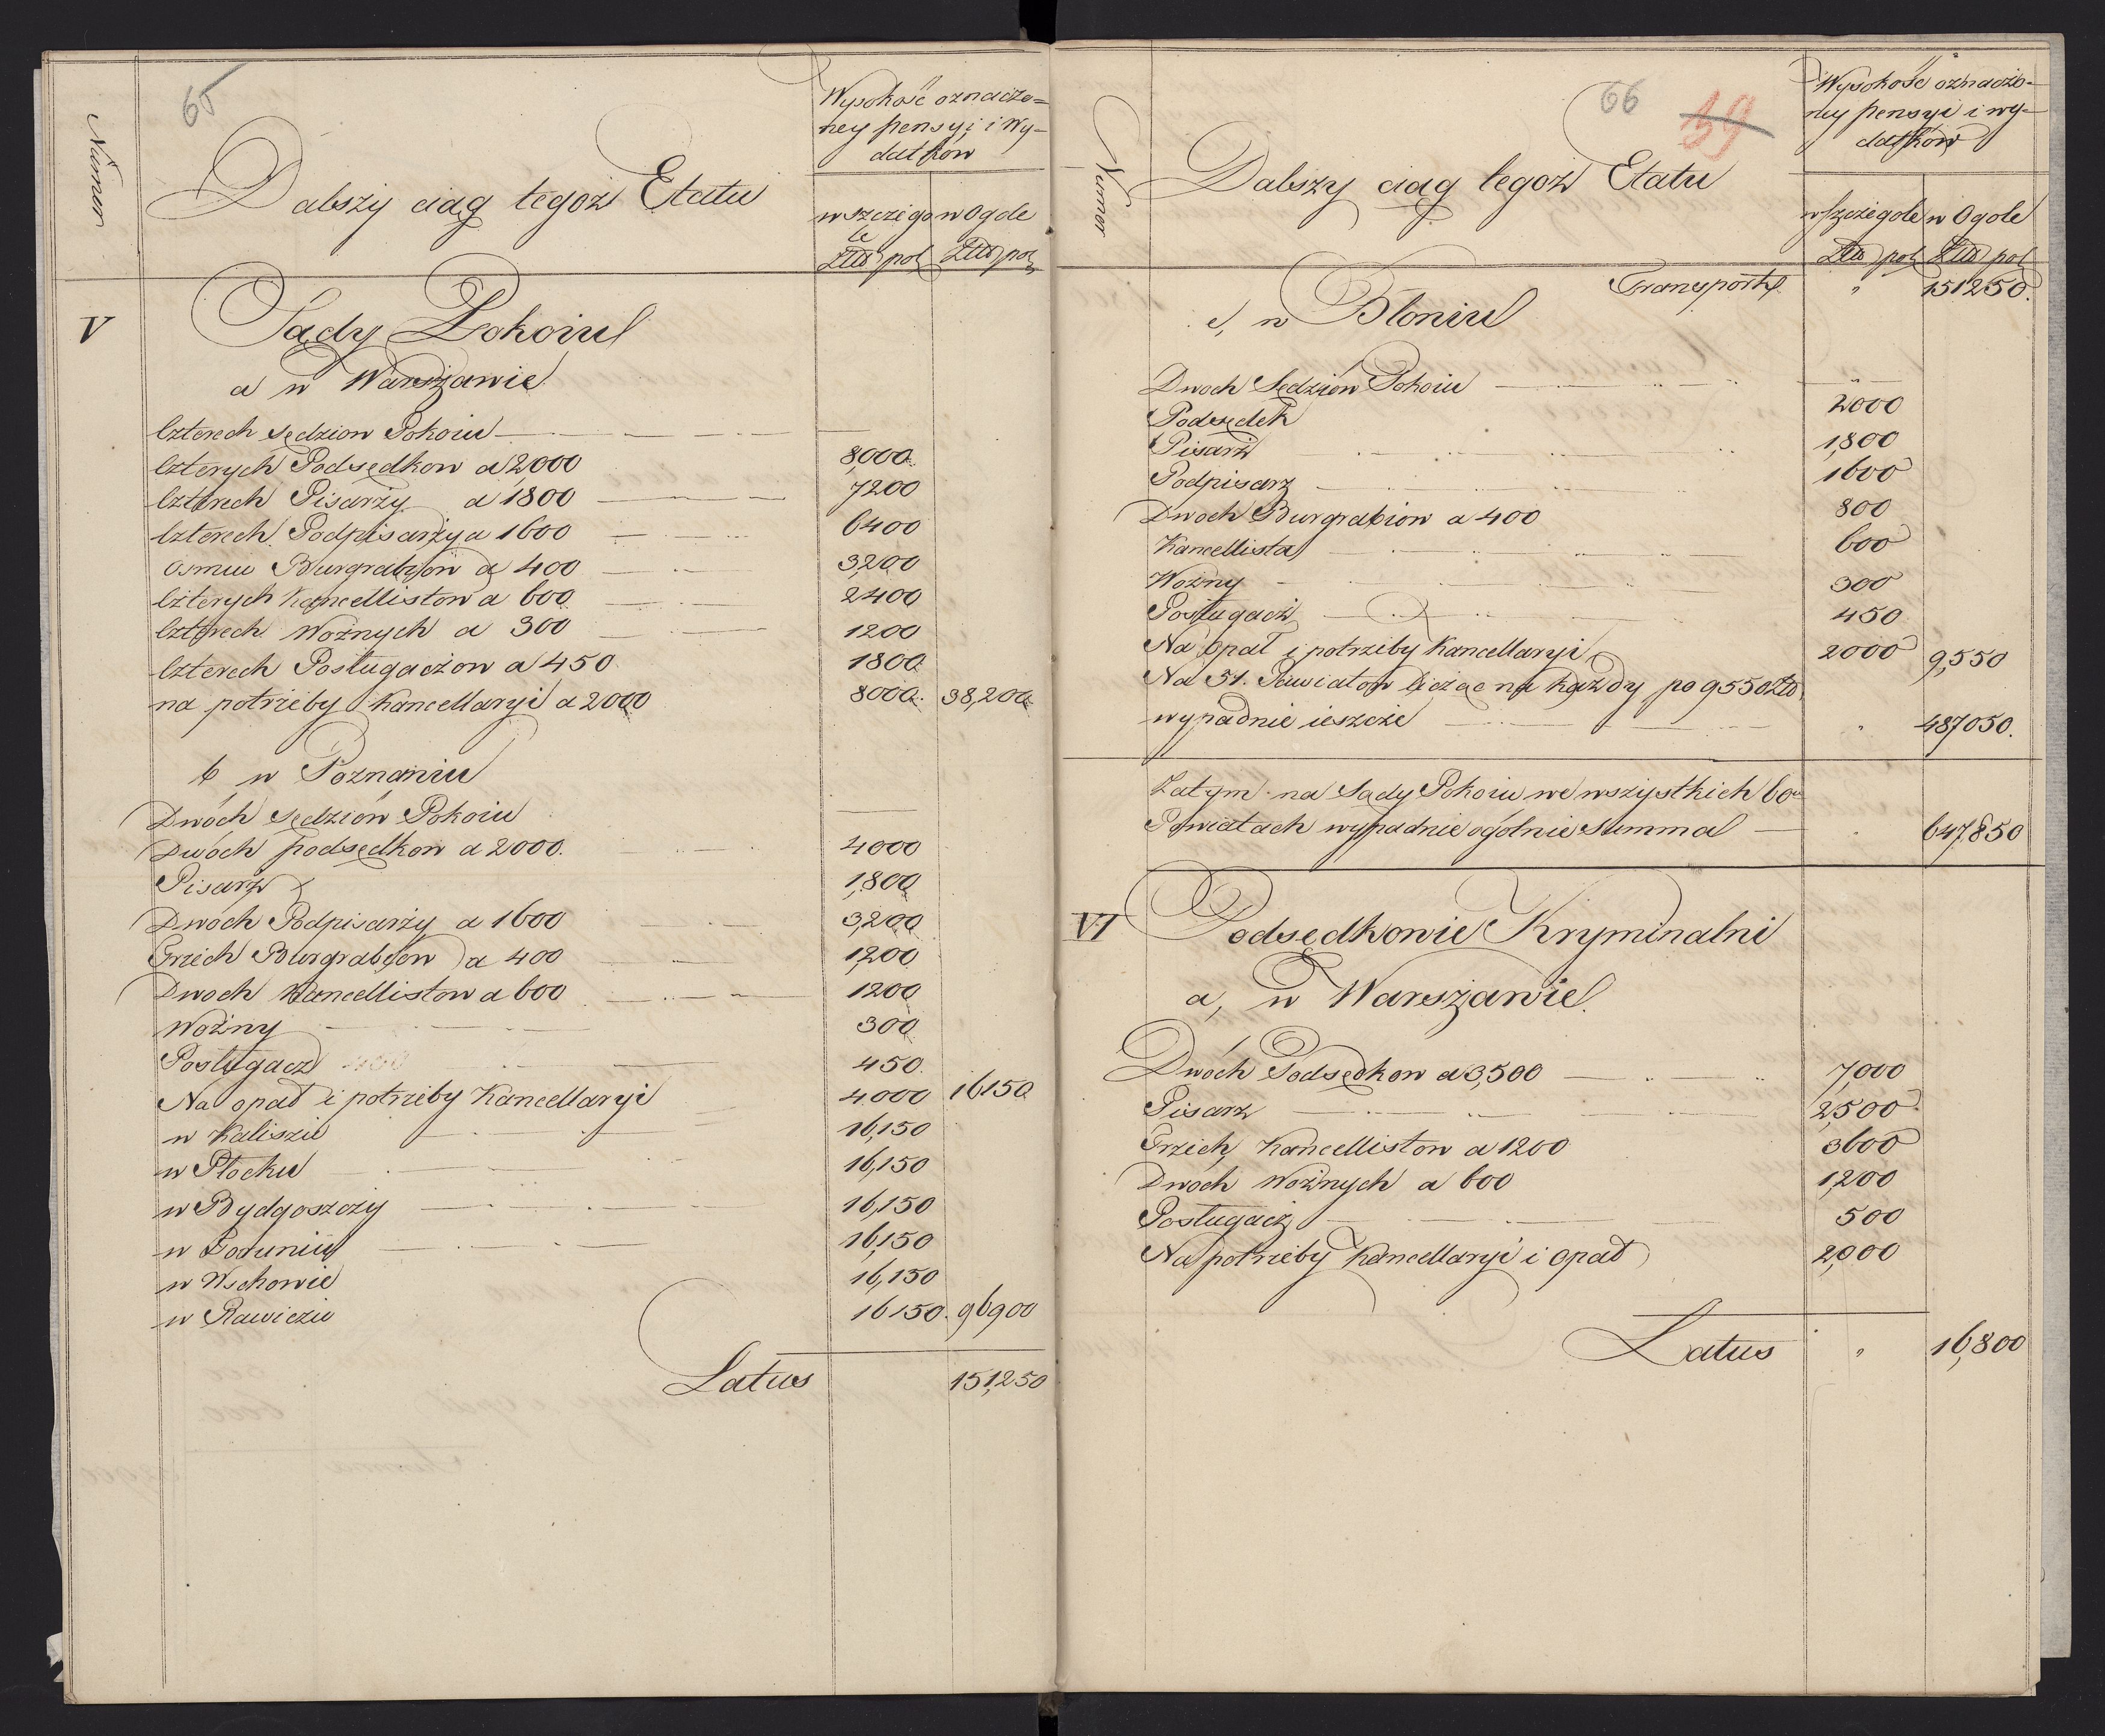 65
Numer
Dalszy ciąg tegoż Etatu
Wysokość oznaczo=
ney pensyi i Wy-
datkow
w szczegó w Ogole
le
Złło pol Złło pol
V
Sądy Pokoiu
a w Warszawie
Czterech Sędziow Pokoiu
Czterych Podsędkow a 2,000 8,000.
Czterech Pisarzy a 1800 7200
Czterech Podpisarzy a 1600 6400
Osmiu Burgrabiow a 400 3,200
Czterych Kancellistow a 600 2400
Czterech Woźnych a 300 1200
Czterech Posługaczow a 450 1800
na potrzeby Kancellaryi a 2000 8000. 38,200
b, w Poznaniu
Dwóch Sędziów Pokoiu
Dwóch podsędkow a 2000. 4000
Pisarz 1,800
Dwóch Podpisarzy a 1600 3,200
Trzech Burgrabiow a 400 1,200
Dwoch Kancellistow a 600 1200
Woźny 300
Posługacz 450.
Na opał i potrzeby Kancellaryi 4000 16150
w Kaliszu 16,150
w Płocku 16,150
w Bydgoszczy 16,150
w Toruniu 16,150
w Wschowie 16,150
w Rawiczu 16150. 96900
Latus 151,250
66 39
Numer
Dalszy ciąg tegoż Etatu
Wysokość oznaczo-
ney pensyi i wy-
datków
w szczegole w Ogole
Złło pol Złło pol
Transport " 151250.
c, w Błoniu
Dwoch Sędziów Pokoiu "
Podsędek 2000
Pisarz 1,800
Podpisarz 1600
Dwoch Burgrabiow a 400 800
Kancellista 600
Woźny 300
Posługacz 450
Na opał i potrzeby Kancellaryi 2000 9,550
Na 51. Powiatow licząc na każdy po 9550 Złło
wypadnie ieszcze " 487050.
Zatym na Sądy Pokoiu we wszystkich 60
Powiatach wypadnie ogólnie Summa " 647,850
VI
Podsędkowie Kryminalni
a, w Warszawie.
Dwóch Podsędkow a 3,500 7,000
Pisarz 2,500
Trzech Kancellistow a 1200 3600
Dwoch Woźnych a 600 1,200
Posługacz 500
Na potrzeby Kancellaryi i opał 2,000
Latus " 16,800